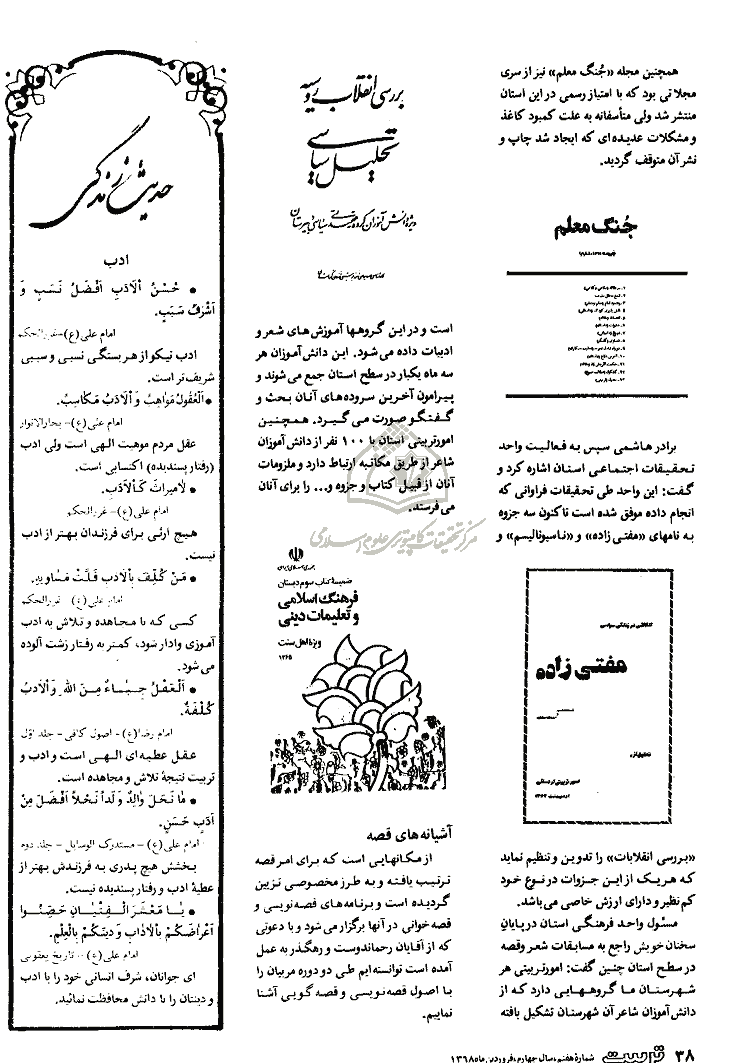 همچنین مجله «جُنگ معلم» نیز از سری
مجلاتی بود که با امتیاز رسمی در این استان
منتشر شد ولی متأسفانه به علت کمبود کاغذ
و مشکلات عدیده‌ای که ایجاد شد چاپ و
نشر آن متوقف گردید.
جُنگ معلم
برادر هاشمی سپس به فعالیت واحد
تحقیقات اجتماعی استان اشاره کرد و
گفت: این واحد طی تحقیقات فراوانی که
انجام داده موفق شده است تاکنون سه جزوه
به نامهای «مفتی زاده» و «ناسیونالیسم» و
مفتی زاده
«بررسی انقلابات» را تدوین و تنظیم نماید
که هریک از این جزوات در نوع خود
کم نظیر و دارای ارزش خاصی می‌باشد.
مسئول واحد فرهنگی استان در پایان
سخنان خویش راجع به مسابقات شعر وقصه
در سطح استان چنین گفت: امورتربیتی هر
شهرستان ما گروههایی دارد که از
دانش‌آموزان شاعر آن شهرستان تشکیل یافته
بررسی انقلاب روسیه
تحلیل سیاسی
است و در این گروهها آموزش های شعر و
ادبیات داده می‌شود. این دانش‌آموزان هر
سه ماه یکبار در سطح استان جمع می‌شوند و
پیرامون آخرین سروده‌های آنان بحث و
گفتگو صورت می گیرد. همچنین
امورتربیتی استان با ۱۰۰ نفر از دانش‌آموزان
شاعر از طریق مکاتبه ارتباط دارد و ملزومات
آنان از قبیل کتاب و جزوه و... را برای آنان
می‌فرستد.
مرکز تحقیقات کامپیوتری علوم اسلامی
ضمیمۀ کتاب سوم دبستان
فرهنگ اسلامی
و تعلیمات دینی
ویژۀ اهل سنت
۱۳۶۵
آشیانه های قصه
از مکانهایی است که برای امر قصه
ترتیب یافته و به طرز مخصوصی تزیین
گردیده است و برنامه‌های قصه‌نویسی و
قصه خوانی در آنها برگزار می‌شود و با دعوتی
که از آقایان رحماندوست و رهگذر به عمل
آمده است توانسته‌ایم طی دو دوره مربیان را
با اصول قصه‌نویسی و قصه گویی آشنا
نماییم.
حدیث زندگی
ادب
• حُسْنُ الْاَدَبِ اَفْضَلُ نَسَبٍ وَ
اَشْرَفُ سَبَبٍ.
امام علی(ع)-غررالحکم
ادب نیکو از هر بستگی نسبی و سببی
شریف تر است.
• اَلْعُقُولُ مَوَاهِبُ وَ الْاَدَبُ مَکَاسِبُ.
امام علی(ع)- بحارالانوار
عقل مردم موهبت الهی است ولی ادب
(رفتار پسندیده) اکتسابی است.
• لَا مِیرَاثَ کَالْاَدَبِ.
امام علی(ع)- غررالحکم
هیچ ارثی برای فرزندان بهتر از ادب
نیست.
• مَنْ کُلِّفَ بِالْاَدَبِ قَلَّتْ مَسَاوِیهِ.
امام علی(ع) - غررالحکم
کسی که با مجاهده و تلاش به ادب
آموزی وادار شود، کمتر به رفتار زشت آلوده
می‌شود.
• اَلْعَقْلُ حِبَاءٌ مِنَ اللهِ وَ الْاَدَبُ
کُلْفَةٌ.
امام رضا(ع) - اصول کافی - جلد اول
عقل عطیه‌ای الهی است و ادب و
تربیت نتیجۀ تلاش و مجاهده است.
• مَا نَحَلَ وَالِدٌ وَلَداً نَحْلاً اَفْضَلَ مِنْ
اَدَبٍ حَسَنٍ.
امام علی(ع) - مستدرک الوسایل - جلد دوم
بخشش هیچ پدری به فرزندش بهتر از
عطیۀ ادب و رفتار پسندیده نیست.
• یَا مَعْشَرَ الْفِتْیَانِ حَصِّنُوا
اَعْرَاضَکُمْ بِالْآدَابِ وَ دِینَکُمْ بِالْعِلْمِ.
امام علی(ع) - تاریخ یعقوبی
ای جوانان، شرف انسانی خود را با ادب
و دینتان را با دانش محافظت نمائید.
۳۸ تربیت شمارۀ هفتم، سال چهارم، فروردین ماه ۱۳۶۸